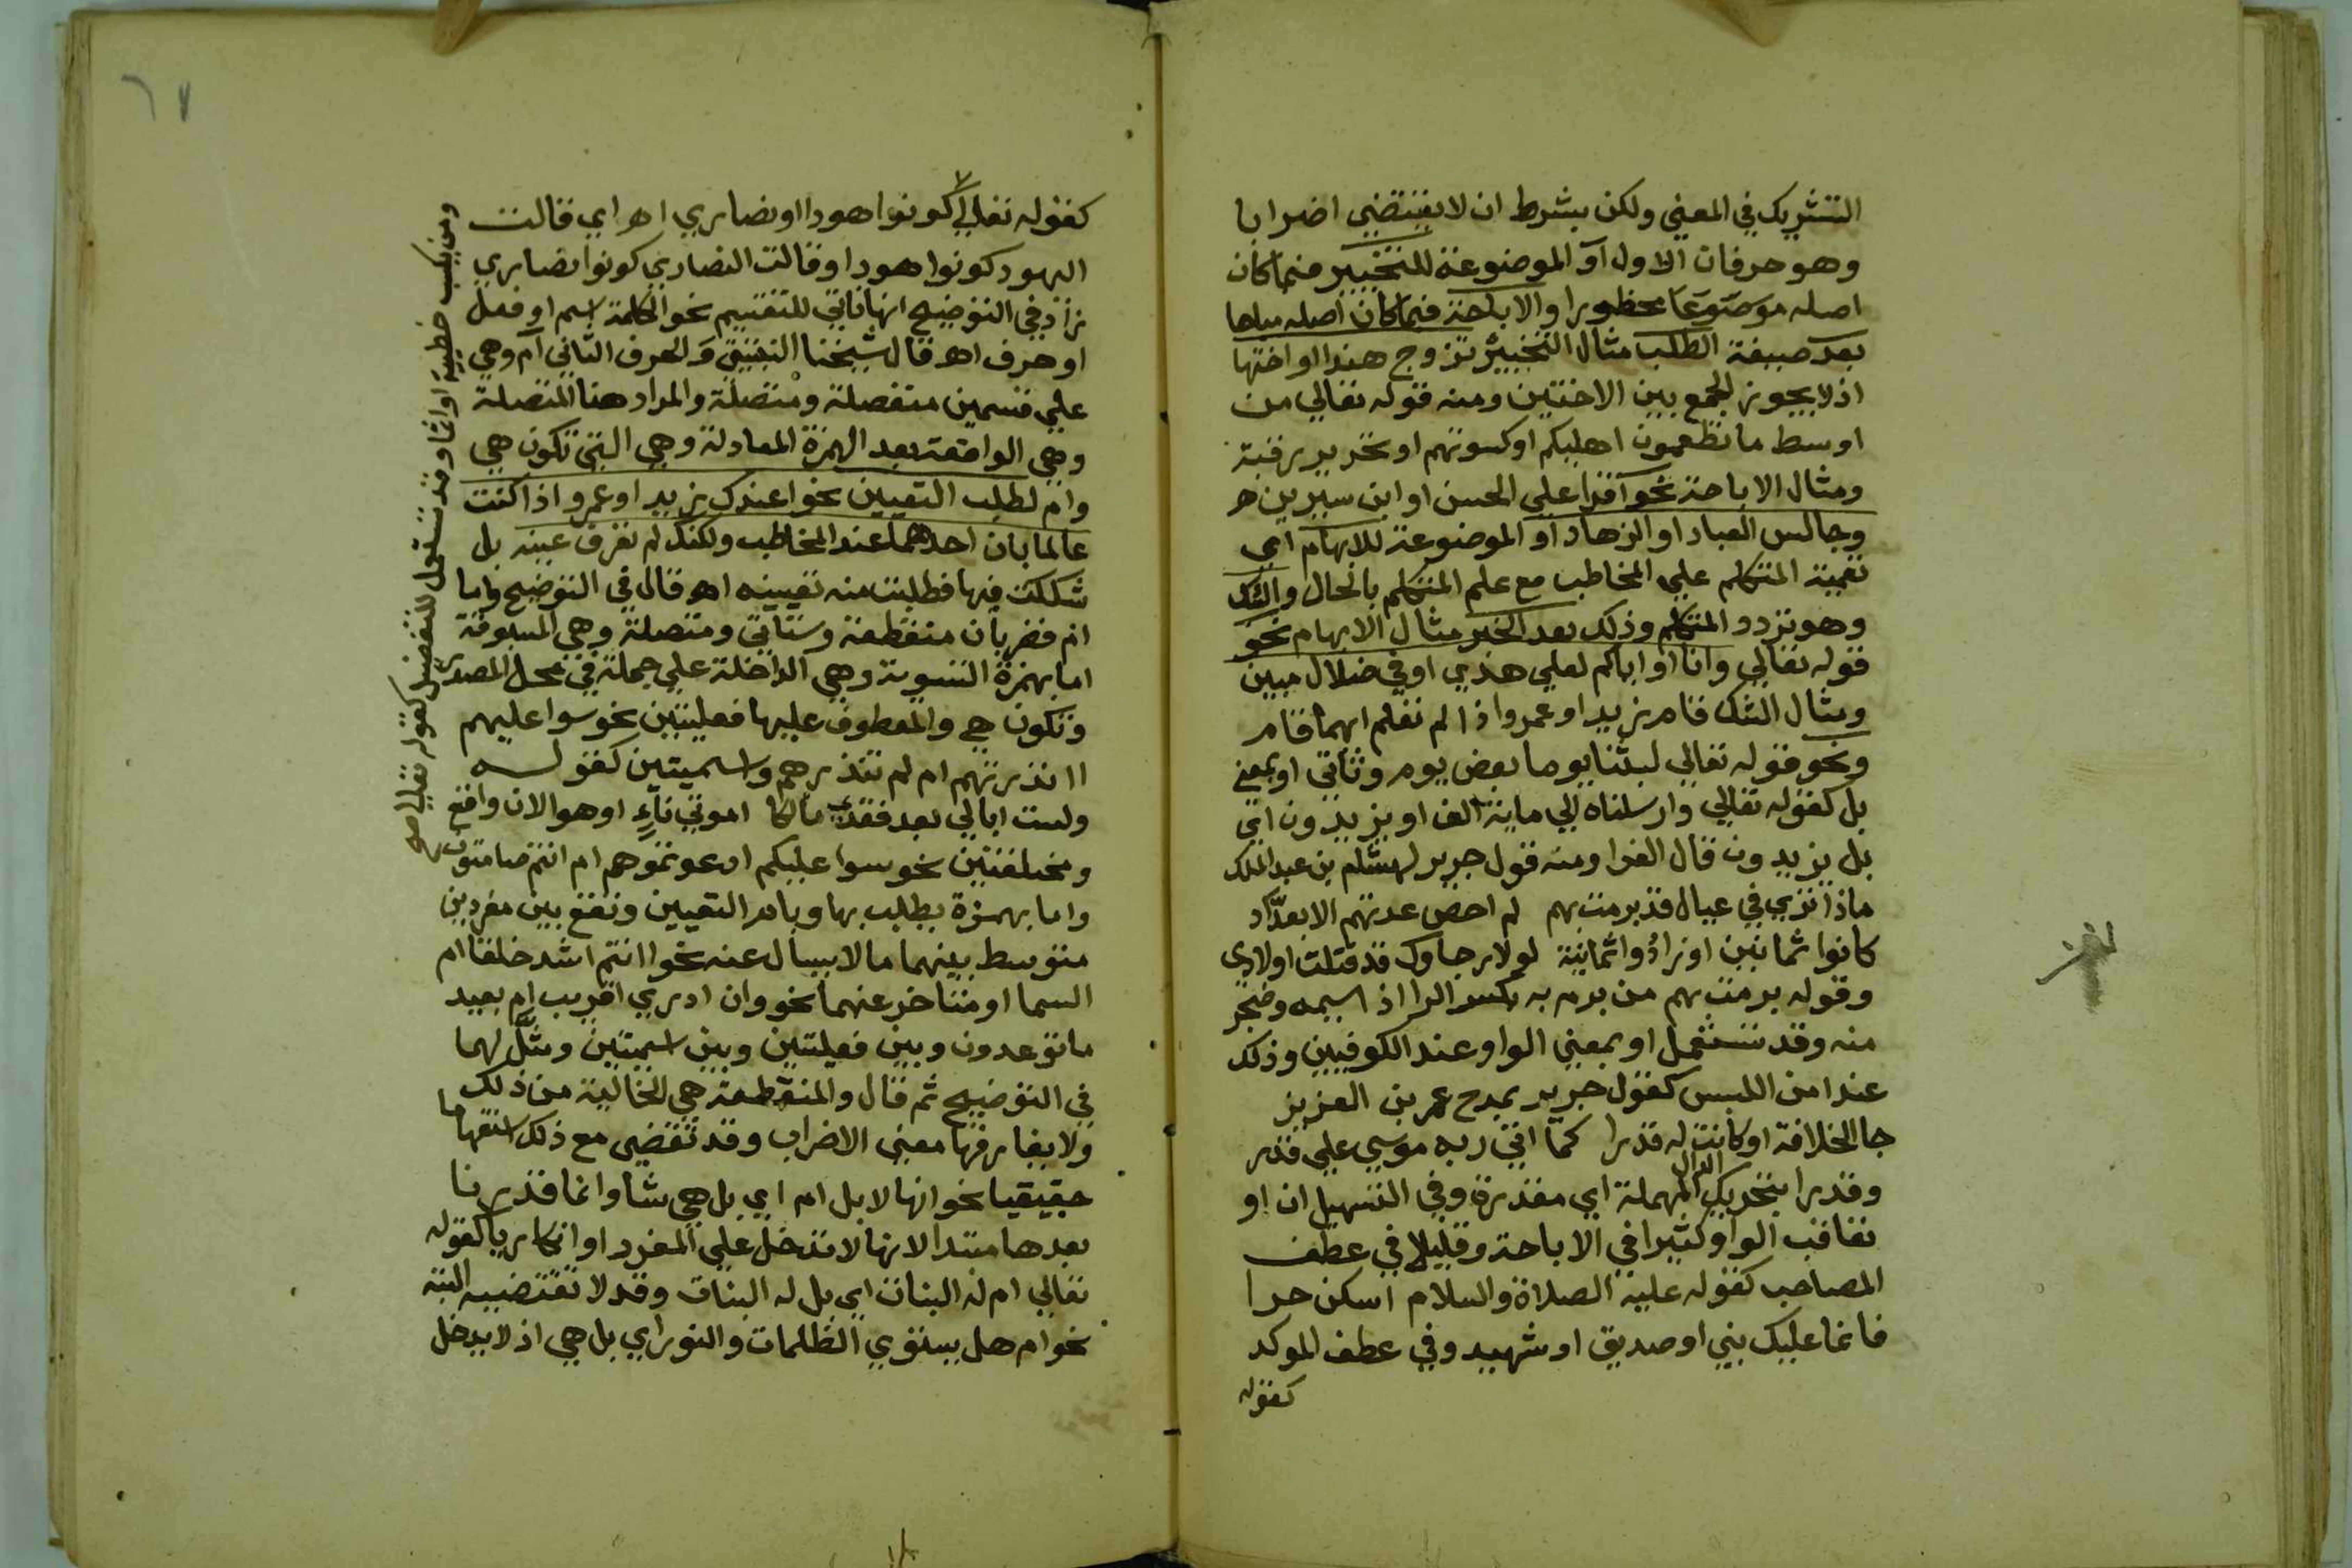 التشريك في المعني ولكن بشرط ان لا يقتضي اضرابا
وهو حرفان الاول او الموضوعة للتخيير فيما كان
اصله موضوعا محظورا والاباحة فيما كان اصله مباحا
بعد صيغة الطلب مثال التخيير تزوج هندا او اختها
اذ لا يجوز الجمع بين الاختين ومنه قوله تعالي من
اوسط ما تطعمون اهليكم او كسوتهم او تحرير رقبة
ومثال الاباحة نحو اقرا علي الحسن او ابن سيرين
وجالس العباد او الزهاد او الموضوعة للابهام اي
تعمية المتكلم علي المخاطب مع علم المتكلم بالحال والشك
وهو تردد المتكلم وذلك بعد الخبر مثال الابهام نحو
قوله تعالي وانا او اياكم لعلي هدي او في ضلال مبين
ومثال الشك قام زيد او عمرو اذا لم تعلم ايهما قام
ونحو قوله تعالي لبثنا يوما او بعض يوم وتاتي او بمعني
بل كقوله تعالي وارسلناه الي ماية الف او يزيدون اي
بل يزيدون قال الفرا ومنه قول جرير لهشام بن عبد الملك
ماذا تري في عيال قد برمت بهم لم احص عدتهم الا بعداد
كانوا ثمانين او زادوا ثمانية لولا رجاوك قد قتلت اولادي
وقوله برمت بهم من برم به بكسر الرا اذا سيمه وضجر
منه وقد تستعمل او بمعني الواو عند الكوفيين وذلك
عند امن اللبس كقول جرير يمدح عمر بن العزيز
جا الخلافة او كانت له قدرا كما اتي ربه موسي علي قدر
وقدرا بتحريك الدال المهملة اي مقدرة وفي التسهيل ان او
تعاقب الواو كثيرا في الاباحة وقليلا في عطف
المصاحب كقوله عليه الصلاة والسلام اسكن حرا
فانما عليك نبي او صديق او شهيد وفي عطف الموكد
كقوله
٦٧
كقوله تعالي كونوا هودا او نصاري اه اي قالت
اليهود كونوا هودا وقالت النصاري كونوا نصاري
زاد في التوضيح انها تاتي للتقسيم نحو الكلمة اسم او فعل
او حرف اه قال شيخنا والحرف الثاني ام وهي
علي قسمين منفصلة ومتصلة والمراد هنا المتصلة
وهي الواقعة بعد الهمزة المعادلة وهي التي تكون هي
وام لطلب التعيين نحو اعندك زيد او عمرو اذا كنت
عالما بان احدهما عند المخاطب ولكنك لم تعرف عينه بل
شككت فيها فطلبت منه تعيينه اه قال في التوضيح واما
ام فضربان منقطعة وستاتي ومتصلة وهي المسبوقة
اما بهمزة التسوية وهي الداخلة علي جملة في محل المصدر
وتكون هي والمعطوف عليها فعليتين نحو سوا عليهم
اانذرتهم ام لم تنذرهم واسميتين كقوله
ولست ابالي بعد فقدي مالكا اموتي ناءٍ او هو الان واقع
ومختلفتين نحو سوا عليكم ادعوتموهم ام انتم صامتون
واما بهمزة يطلب بها وبام التعيين وتقع بين مفردين
متوسط بينهما ما لا يسال عنه نحو اانتم اشد خلقا ام
السما او متاخر عنهما نحو وان ادري اقريب ام بعيد
ما توعدون وبين فعليتين وبين اسميتين ومثل لهما
في التوضيح ثم قال والمنقطعة هي الخالية من ذلك
ولا يفارقها معني الاضراب وقد تقتضي مع ذلك استفهاما
حقيقيا نحو انها لابل ام اي بل هي شا وانما قدرنا
بعدها مبتدا لانها لا تدخل علي المفرد او انكاريا كقوله
تعالي ام له البنات اي بل له البنات وقد لا تقتضيه البتة
نحو ام هل يستوي الظلمات والنور اي بل هي اذ لا يدخل
ومن يكسب خطيية او اثما وقد تستعمل للتفصيل كقوله تعالي